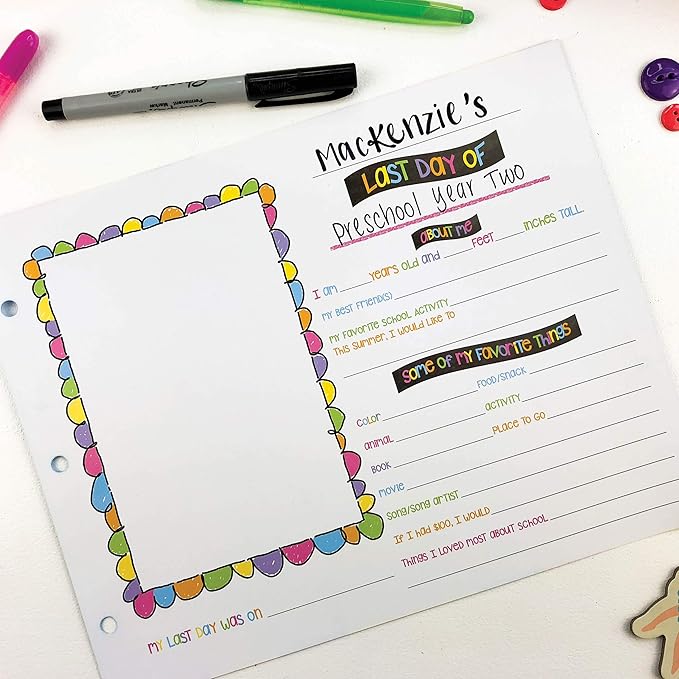 Sharpie
Permanent Marker
MacKenzie's
LAST DAY OF
Preschool Year Two
ABOUT ME
I AM YEARS OLD AND FEET INCHES TALL.
MY BEST FRIEND(S)
MY FAVORITE SCHOOL ACTIVITY
THIS SUMMER, I WOULD LIKE TO
SOME OF MY FAVORITE THINGS
COLOR FOOD/SNACK
ANIMAL ACTIVITY
BOOK PLACE TO GO
MOVIE
SONG/SONG ARTIST
IF I HAD $100, I WOULD
THINGS I LOVED MOST ABOUT SCHOOL
MY LAST DAY WAS ON